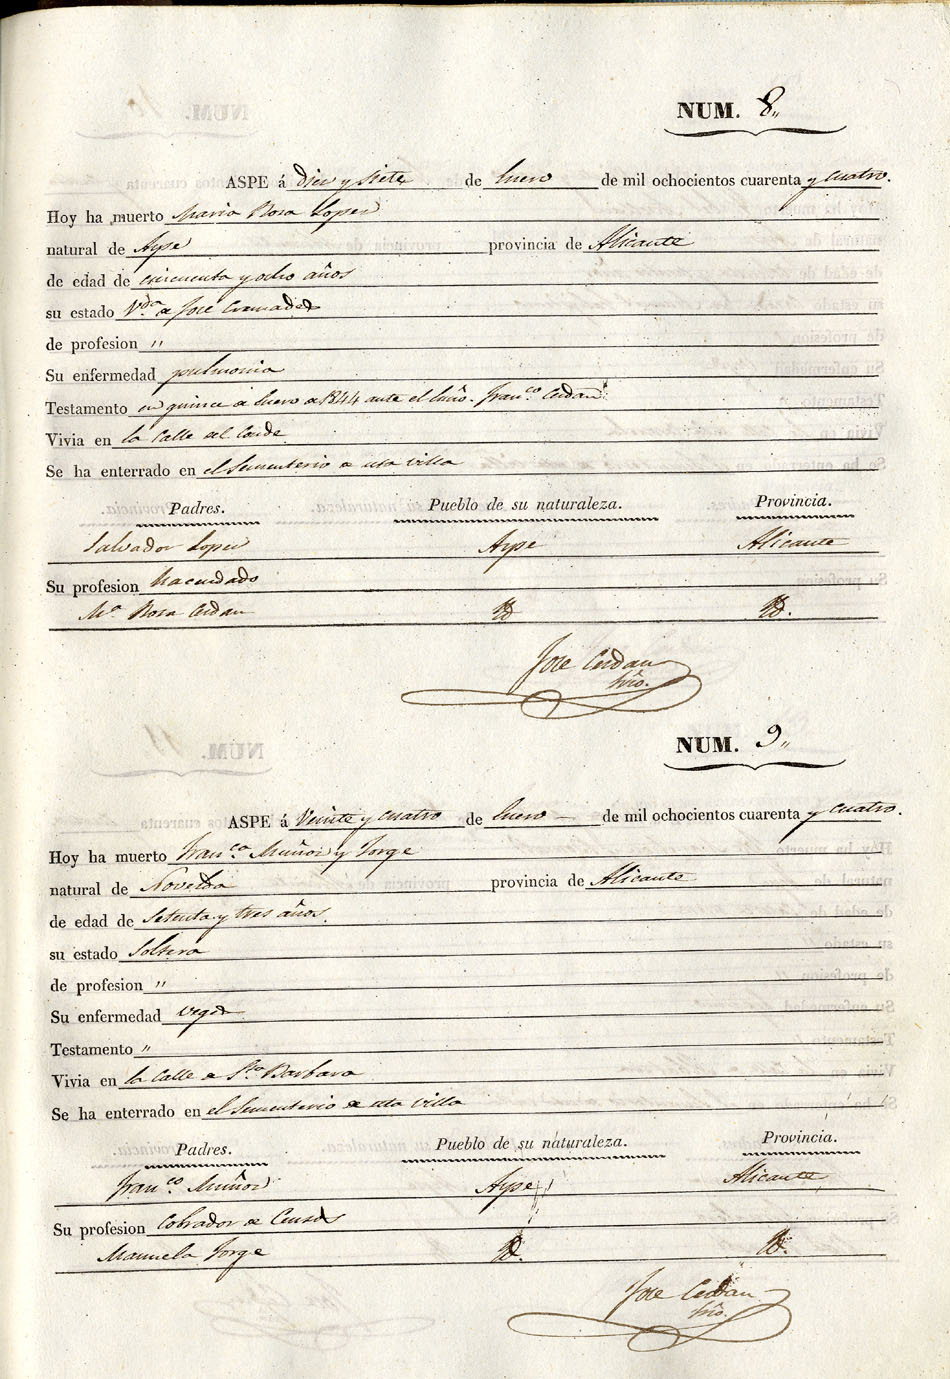 NUM. 8.,
ASPE á diez y siete de Enero de mil ochocientos cuarenta y cuatro.
Hoy ha muerto Maria Rosa Lopez
natural de Aspe provincia de Alicante
de edad de cincuenta y ocho años
su estado Vda de Jose Cremades
de profesion "
Su enfermedad pulmonia
Testamento en quince de Enero de 1844 ante el Esno. Franco Cerdan
Vivia en la Calle del Conde
Se ha enterrado en el Sementerio de esta villa
Padres. Pueblo de su naturaleza. Provincia.
Salvador Lopez Aspe Alicante
Su profesion hacendado
Ma Rosa Cerdan Id Id.
Jose Cerdan
Srio.
NUM. 9.,
ASPE á Veinte y cuatro de Enero — de mil ochocientos cuarenta y cuatro.
Hoy ha muerto Franca Muñoz y Jorge
natural de Novelda provincia de Alicante
de edad de Setenta y tres años.
su estado Soltera
de profesion "
Su enfermedad vegez
Testamento "
Vivia en la Calle de Sta Barbara
Se ha enterrado en el Sementerio de esta villa
Padres. Pueblo de su naturaleza. Provincia.
Franco Muñoz Aspe Alicante
Su profesion Cobrador de Censos
Manuela Jorge Id. Id.
Jose Cerdan
Srio.